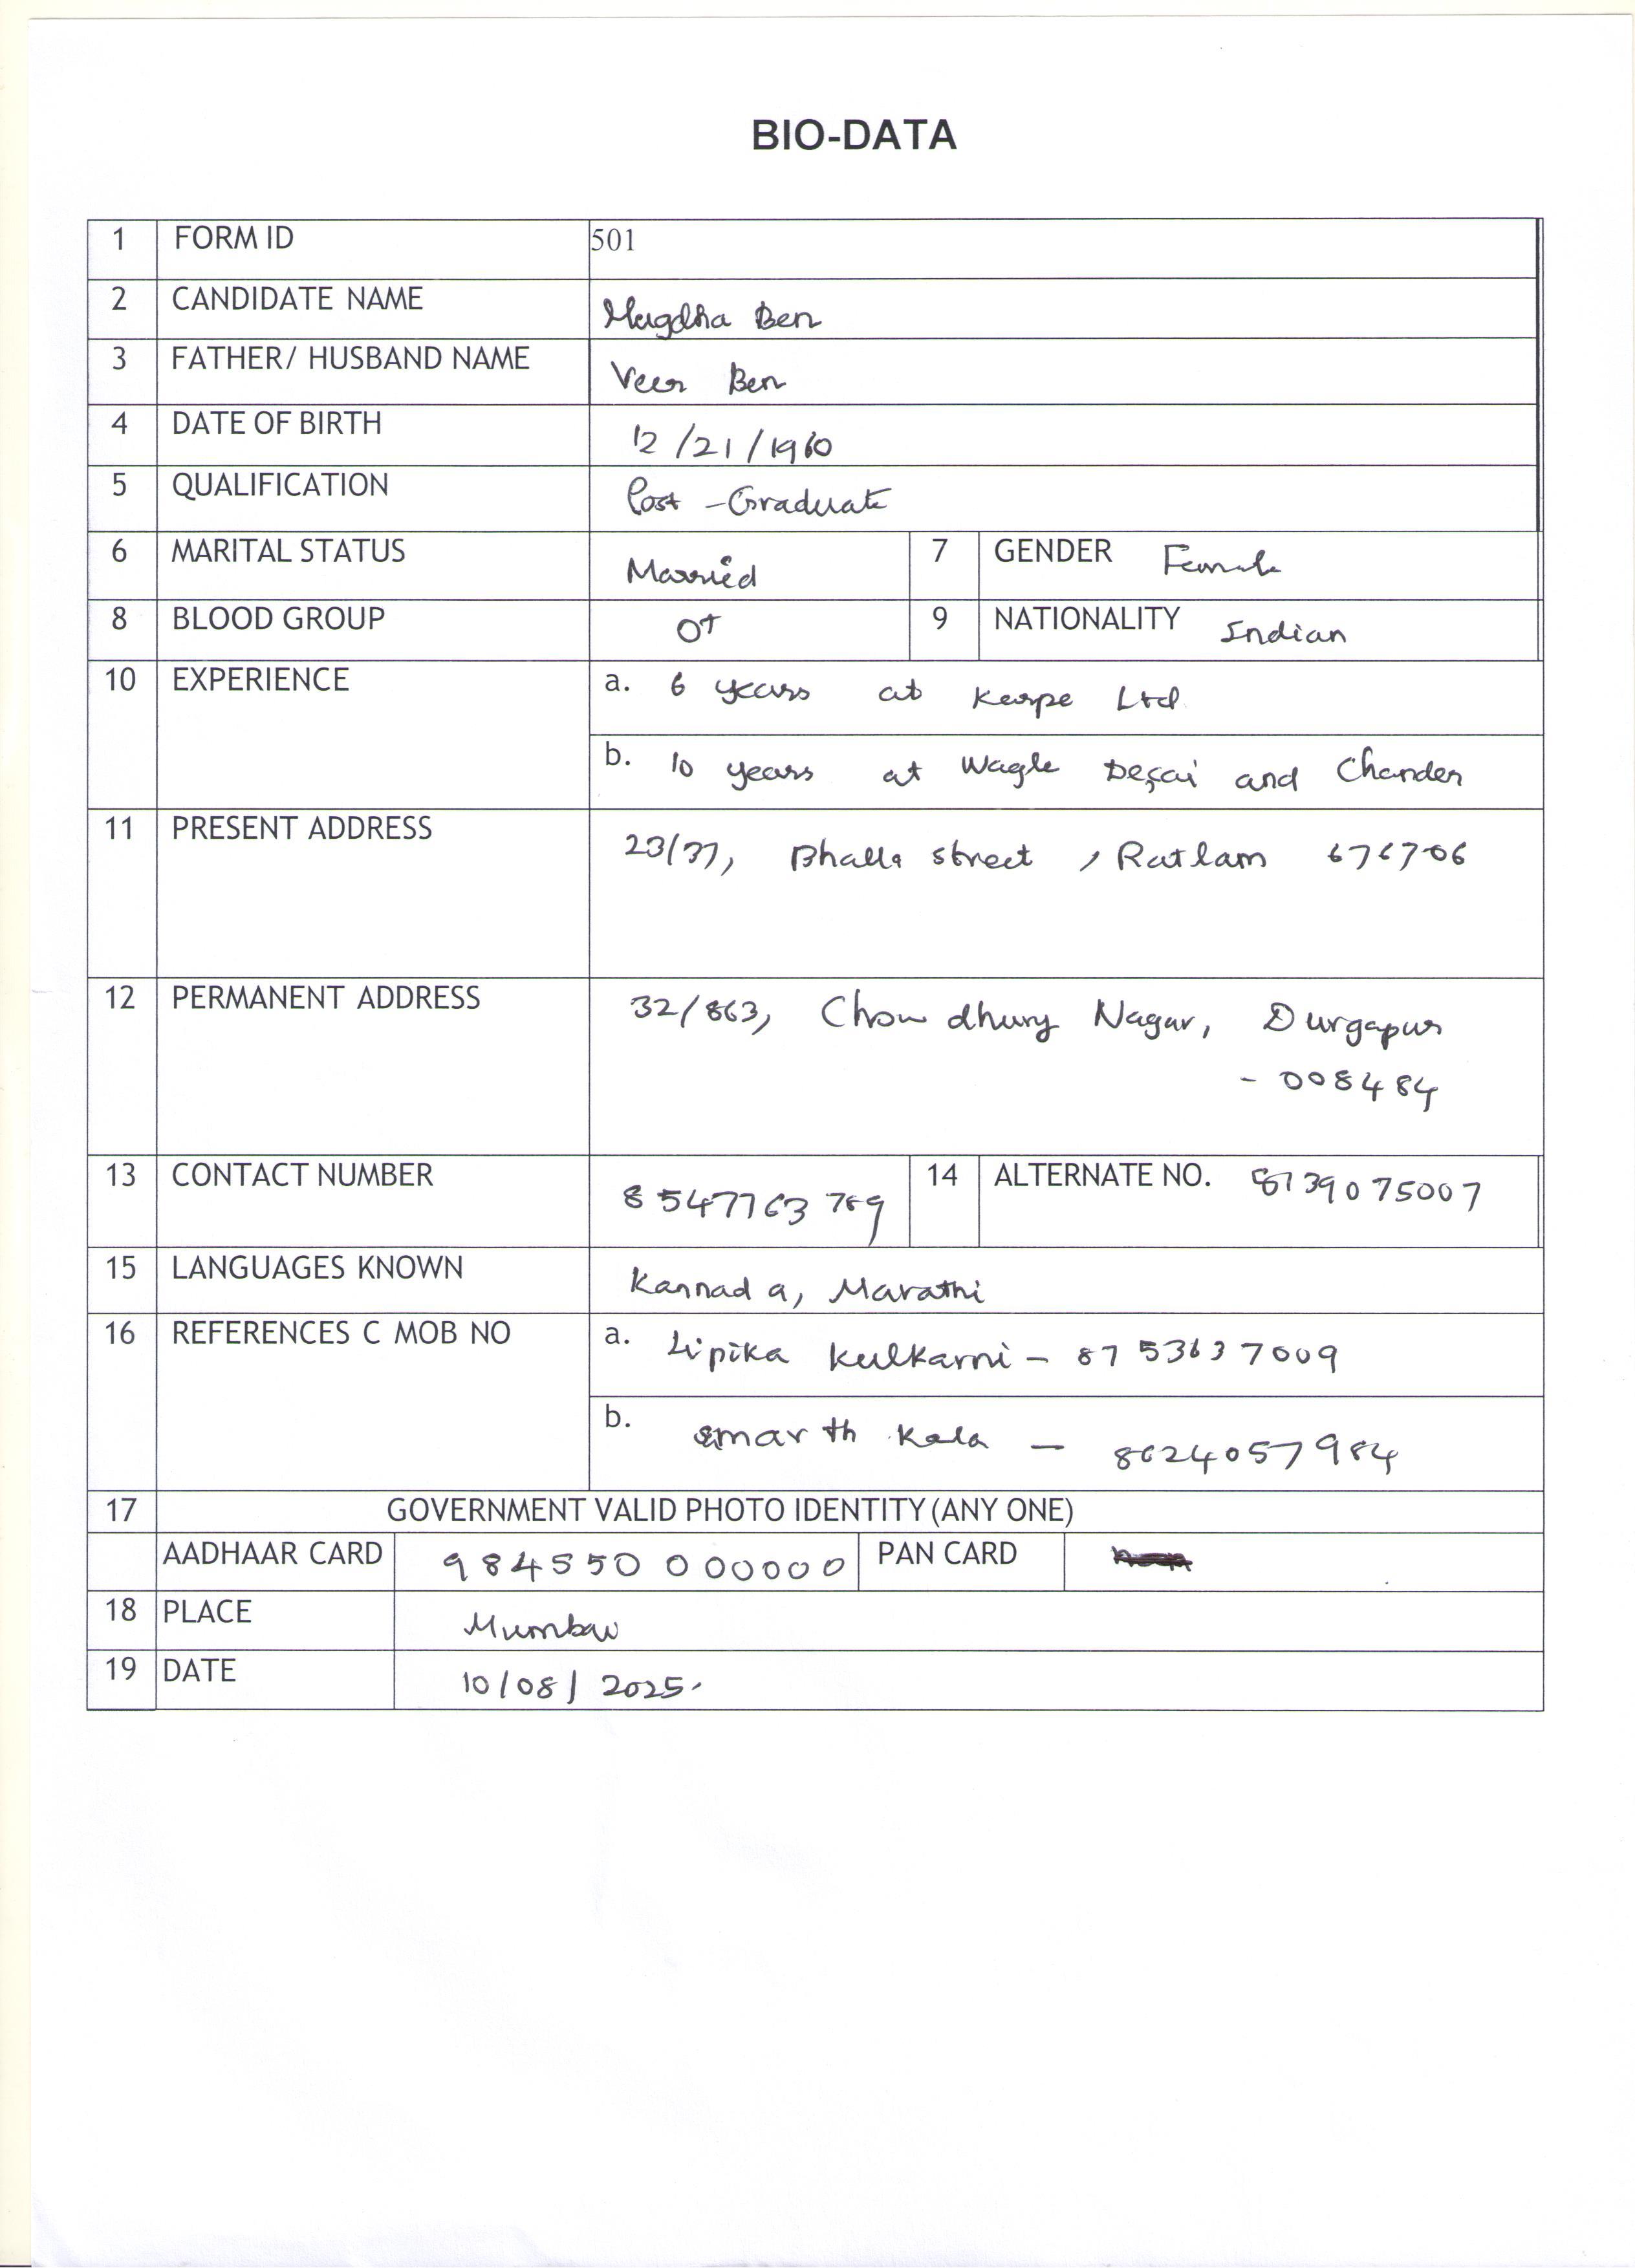 BIO-DATA
1 FORM ID 501
2 CANDIDATE NAME Mugdha Ben
3 FATHER/ HUSBAND NAME Veer Ben
4 DATE OF BIRTH 12/21/1960
5 QUALIFICATION Post-Graduate
6 MARITAL STATUS Married 7 GENDER Female
8 BLOOD GROUP O+ 9 NATIONALITY Indian
10 EXPERIENCE a. 6 years at Karpe Ltd
b. 10 years at Wagle Desai and Chander
11 PRESENT ADDRESS 23/37, Bhalla street, Ratlam 676706
12 PERMANENT ADDRESS 32/863, Chowdhury Nagar, Durgapur
- 008484
13 CONTACT NUMBER 8547763789 14 ALTERNATE NO. 8139075007
15 LANGUAGES KNOWN Kannada, Marathi
16 REFERENCES C MOB NO a. Lipika Kulkarni - 8753637009
b. Smarth Kala - 8024057984
17 GOVERNMENT VALID PHOTO IDENTITY (ANY ONE)
AADHAAR CARD 984550000000 PAN CARD
18 PLACE Mumbai
19 DATE 10/08/2025.